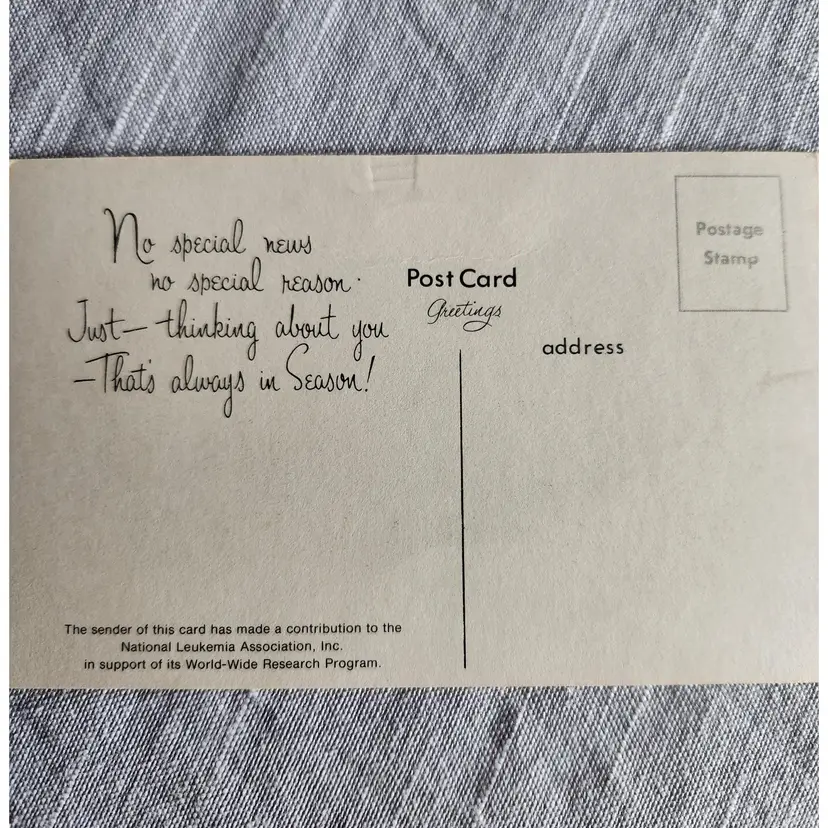 No special news
no special reason.
Just— thinking about you
—That's always in Season!
Post Card
Greetings
address
Postage
Stamp
The sender of this card has made a contribution to the
National Leukemia Association, Inc.
in support of its World-Wide Research Program.